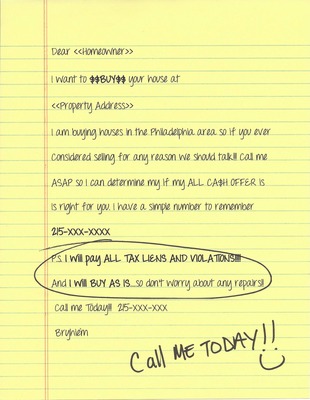 Dear <<Homeowner>>
I want to $$BUY$$ your house at
<<Property Address>>
I am buying houses in the Philadelphia area so if you ever
Considered selling for any reason we should talk!!! Call me
ASAP so I can determine my if my ALL CA$H OFFER is
is right for you. I have a simple number to remember
215-XXX-XXXX
P.S. I will pay ALL TAX LIENS AND VIOLATIONS!!!!!
And I will BUY AS IS...so don't worry about any repairs!!
Call me Today!!! 215-XXX-XXX
Bryhiem
Call ME TODAY!!